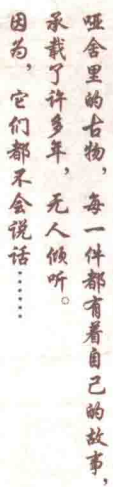 哑舍里的古物，每一件都有着自己的故事，
承载了许多年，无人倾听。
因为，它们都不会说话……